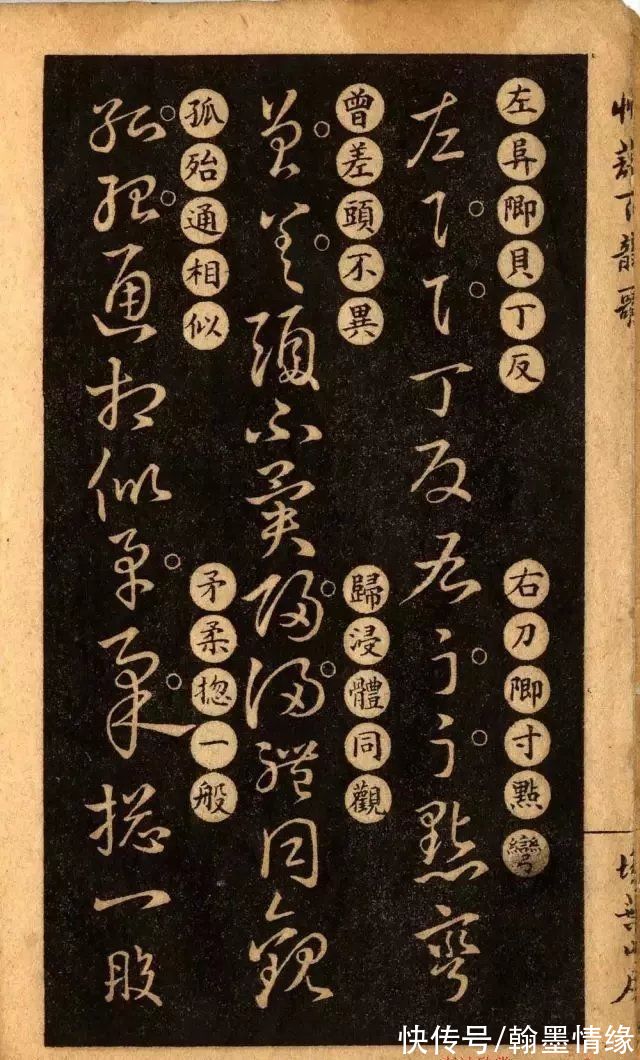 草訣百韻歌
掃葉山房
左卽貝丁反
右刀卽寸點彎
左丁反右點彎
曾差頭不異
歸浸體同觀
曾差頭不異歸浸體同觀
孤殆通相似
矛柔揔一般
孤殆通相似矛柔揔一般
快传号/翰墨情缘